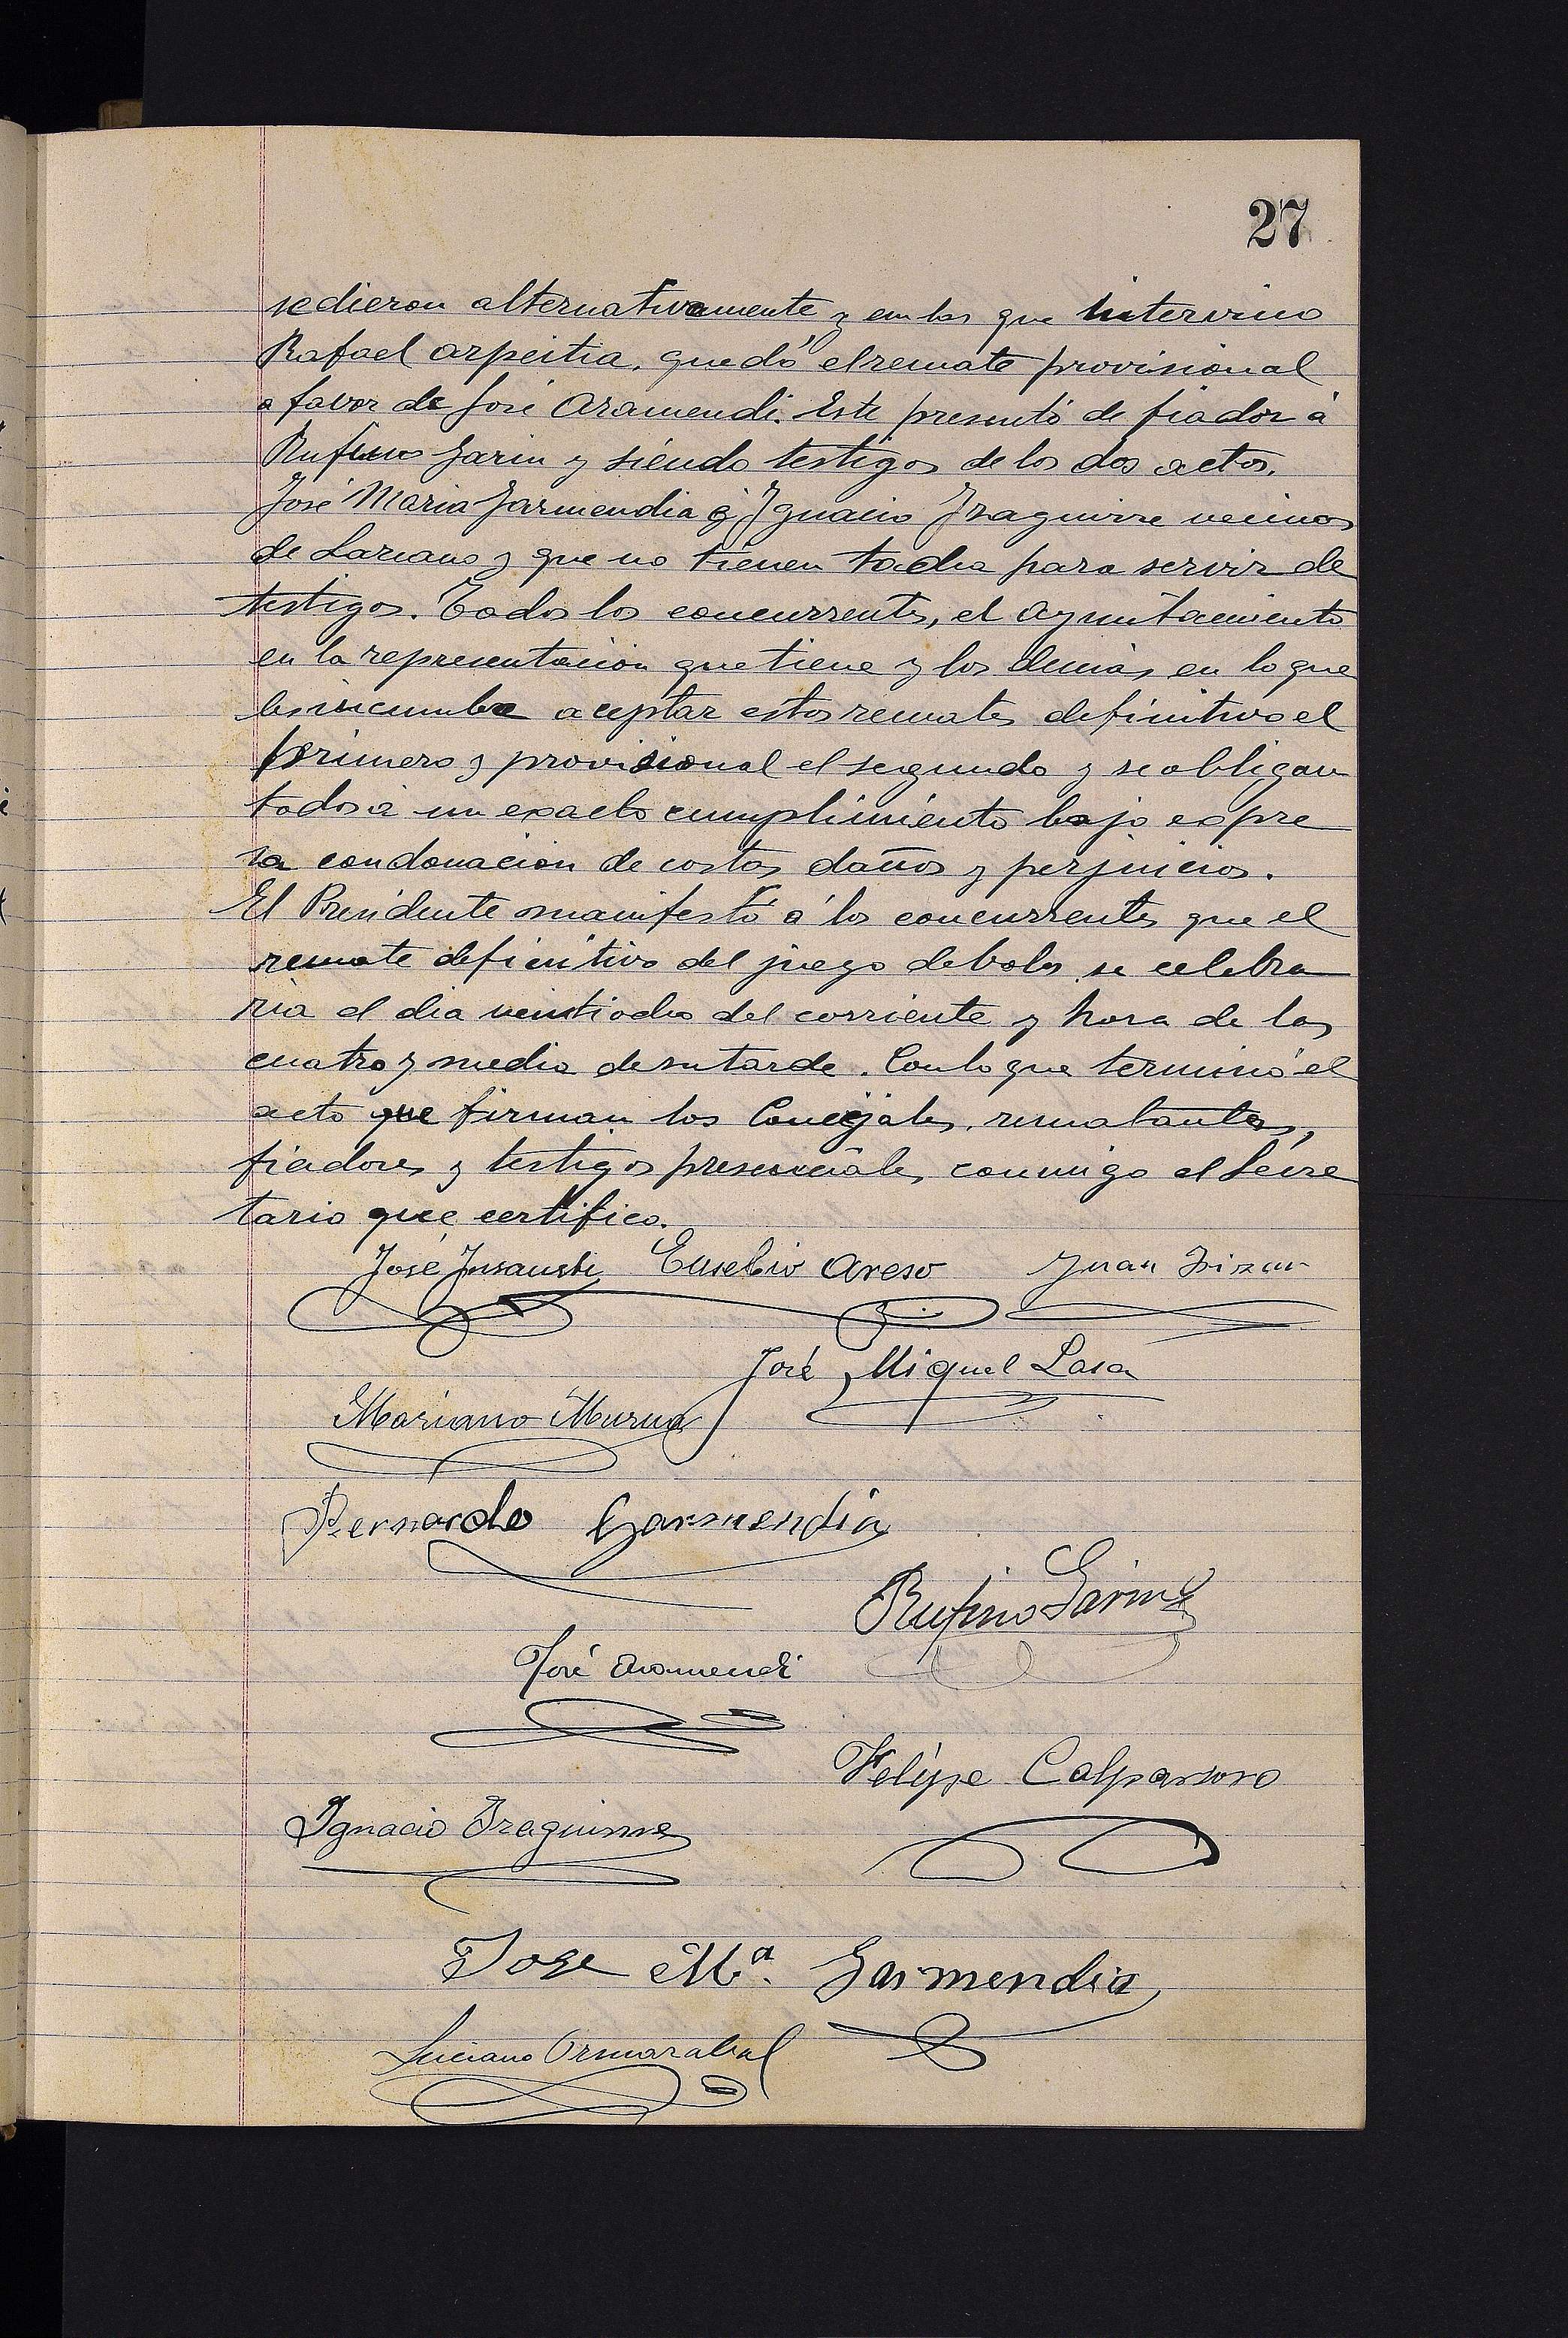 27
se dieron alternativamente y en las que intervino
Rafael Azpeitia, quedó el remate provisional
a favor de José Aramendi. Este presentó de fiador á
Rufino Garin y siendo testigos de los dos actos.
José Maria Garmendia é Ignacio Izaguirre vecinos
de Lazcano y que no tienen tacha para servir de
testigos. Todos los concurrentes, el Ayuntamiento
en la representacion que tiene y los demás en lo que
les incumbe aceptar estos remates definitivo el
primero y provisional el segundo y se obligan
todos á un exacto cumplimiento bajo expre
sa condonacion de costas daños y perjuicios.
El Presidente manifestó á los concurrentes que el
remate definitivo del juego de bolos se celebra
ria el dia veintiocho del corriente y hora de las
cuatro y media de su tarde. Con lo que terminó el
acto que firman los Concejales, rematantes,
fiadores y testigos presenciales, conmigo el Secre
tario que certifico.
José Insausti Eusebio Areso Juan Irizar
José Miguel Lasa
Mariano Murua
Bernardo Garmendia
Rufino Garin
José Aramendi
Felipe Calparsoro
Ignacio Izaguirre
Jose Mª. Garmendia
Luciano Ormazabal